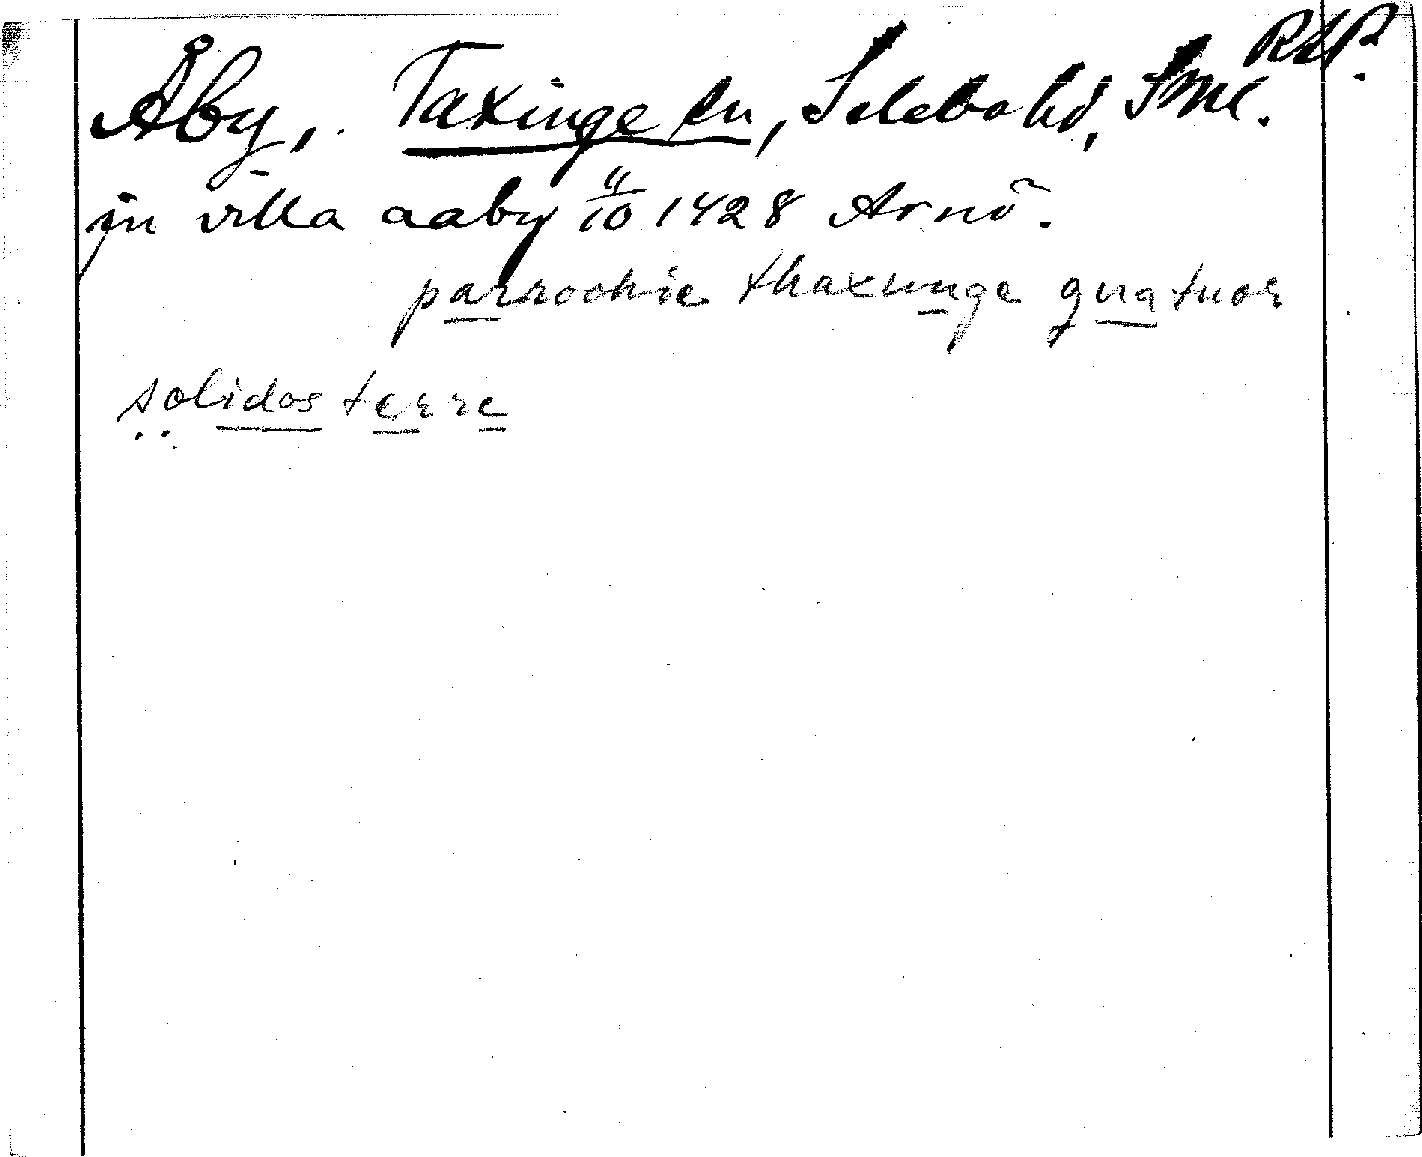 RAP.
Åby, Taxinge sn, Selebo hd, Sml.
in villa aaby 11/10 1428 Arnö.
parrochie thaxunge quatuor
solidos terre